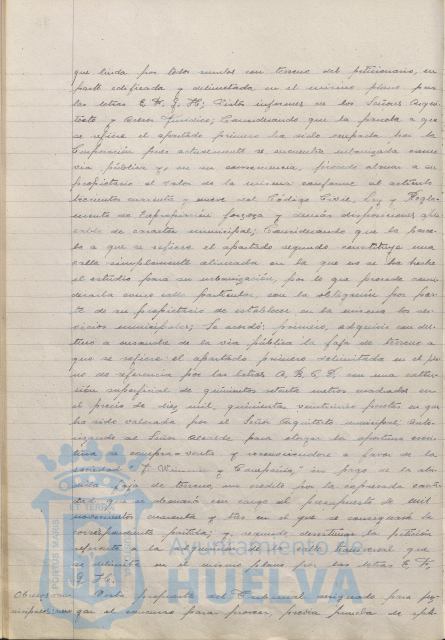 que linda por todos rumbos con terreno del peticionario, en
parte edificada y delimitada en el mismo plano por
las letras E, F, G, H; Vistos informes de los Señores Arqui-
tecto y Asesor Jurídico; Considerando que la parcela a que
se refiere el apartado primero ha sido ocupada por la
Corporación pues actualmente se encuentra urbanizada como
vía pública y, en su consecuencia, procede abonar a su
propietario el valor de la misma conforme al artículo
trescientos cuarenta y nueve del Código Civil, Ley y Regla-
mento de Expropiación forzosa y demás disposiciones apli-
cables de carácter municipal; Considerando que la parce-
la a que se refiere el apartado segundo constituye una
calle simplemente alineada en la que no se ha hecho
el estudio para su urbanización, por lo que procede consi-
derarla como calle particular, con la obligación por par-
te de su propietario de establecer en la misma los ser-
vicios municipales; Se acordó: primero, adquirir con des-
tino a ensanche de la vía pública la faja de terreno a
que se refiere el apartado primero delimitada en el pla-
no de referencia por las letras A, B, C, D, con una exten-
sión superficial de quinientos setenta metros cuadrados en
el precio de diez mil, quinientas veintiuna pesetas en que
ha sido valorada por el Señor Arquitecto municipal auto-
rizando al Señor Alcalde para otorgar la oportuna escri-
tura de compra-venta y reconociéndose a favor de la
sociedad y Compañía," en pago de la alu-
dida faja de terreno, un crédito por la expresada canti-
dad que se abonará con cargo al presupuesto de mil
novecientos cuarenta y tres en el que se consignará la
correspondiente partida; y segundo desestimar la petición
referente a la adquisición de la calle transversal que
se delimita en el mismo plano por las letras E, F,
G, H.
Vista propuesta del Tribunal designado para juz-
gar el concurso para proveer, previa prueba de apti-
Ayuntamiento de
HUELVA
PORTUS MARIS
ET TERRAE